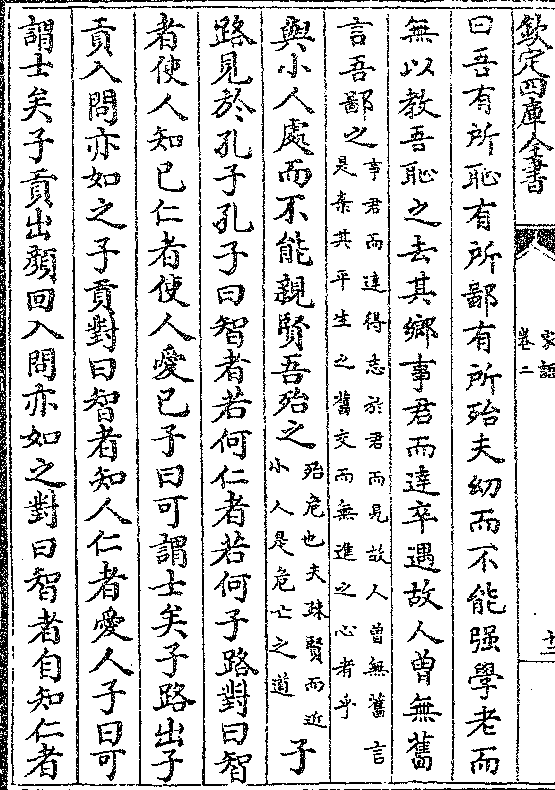 欽定四庫全書
家語
卷二
十二
曰吾有所恥有所鄙有所殆夫幼而不能强學老而
無以教吾恥之去其鄉事君而達卒遇故人曾無舊
言吾鄙之
事君而達得志於君而見故人曾無舊言
是棄其平生之舊交而無進之心者乎
與小人處而不能親賢吾殆之
殆危也夫疎賢而近
小人是危亡之道
子
路見於孔子孔子曰智者若何仁者若何子路對曰智
者使人知已仁者使人愛已子曰可謂士矣子路出子
貢入問亦如之子貢對曰智者知人仁者愛人子曰可
謂士矣子貢出顏回入問亦如之對曰智者自知仁者